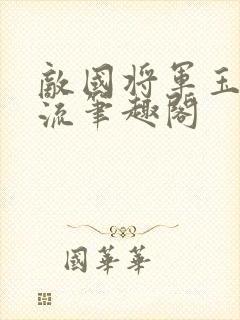 敵國將軍玉
流筆趣閣
國華華